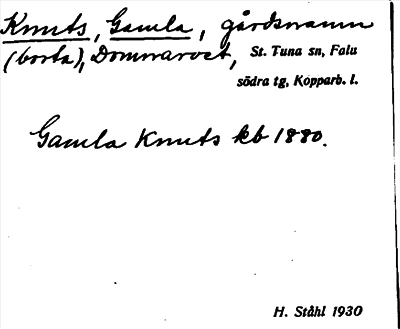 Knuts, Gamla, gårdsnamn
(borta), Domnarvet, St. Tuna sn, Falu
södra tg, Kopparb. l.
Gamla Knuts kb 1880.
H. Ståhl 1930